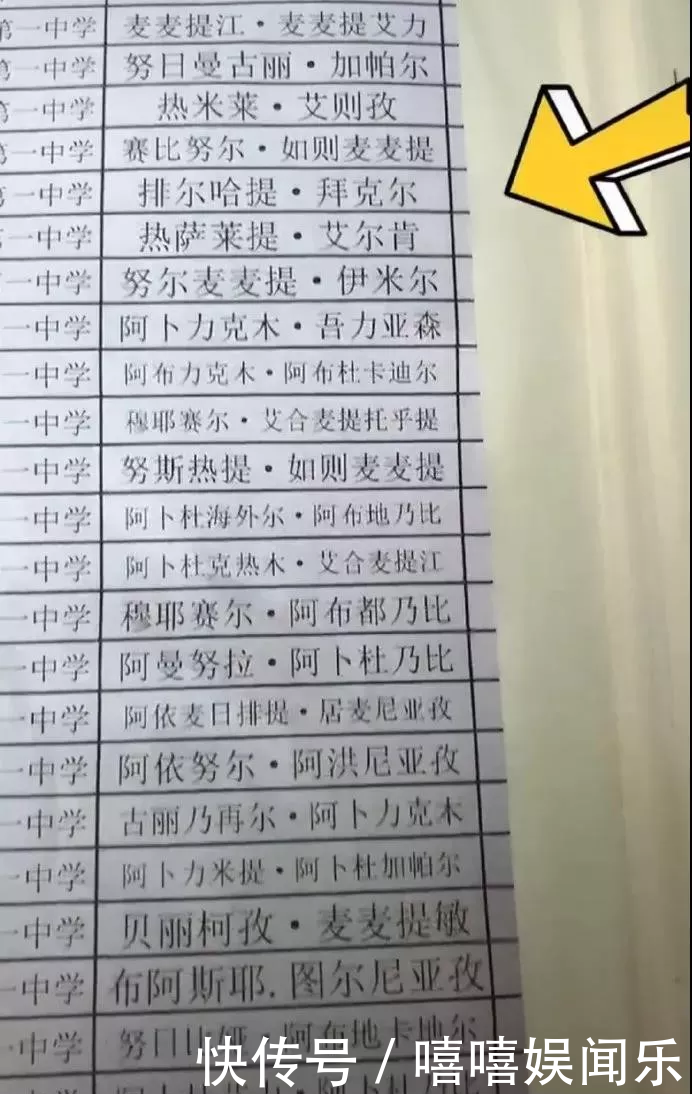 第一中学 麦麦提江·麦麦提艾力
第一中学 努日曼古丽·加帕尔
第一中学 热米莱·艾则孜
第一中学 赛比努尔·如则麦麦提
第一中学 排尔哈提·拜克尔
第一中学 热萨莱提·艾尔肯
一中学 努尔麦麦提·伊米尔
一中学 阿卜力克木·吾力亚森
一中学 阿布力克木·阿布杜卡迪尔
一中学 穆耶赛尔·艾合麦提托乎提
一中学 努斯热提·如则麦麦提
一中学 阿卜杜海外尔·阿布地乃比
一中学 阿卜杜克热木·艾合麦提江
一中学 穆耶赛尔·阿布都乃比
一中学 阿曼努拉·阿卜杜乃比
一中学 阿依麦日排提·居麦尼亚孜
一中学 阿依努尔·阿洪尼亚孜
一中学 古丽乃再尔·阿卜力克木
一中学 阿卜力米提·阿卜杜加帕尔
一中学 贝丽柯孜·麦麦提敏
一中学 布阿斯耶.图尔尼亚孜
一中学 努日比娅·阿布地卡地尔
快传号/嘻嘻娱闻乐